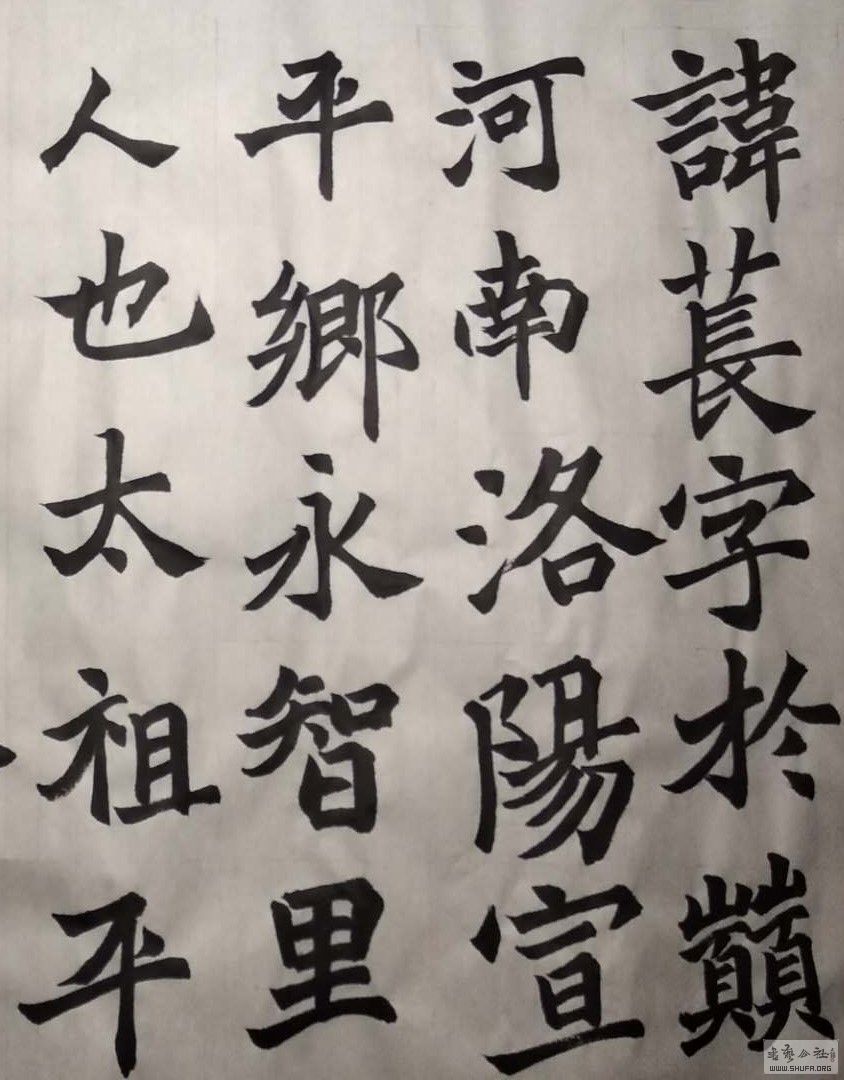 諱萇字於巔
河南洛陽宣
平鄉永智里
人也太祖平
WWW.SHUFA.ORG